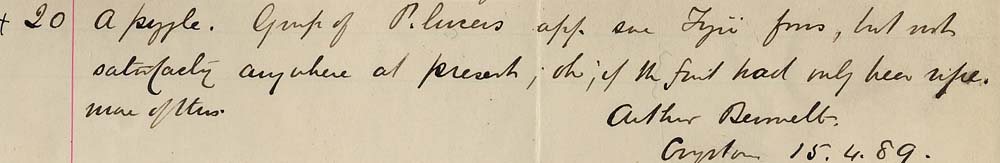 + 20 A puzzle. Group of P. lucens app. some Fijii forms, but not
satisfactory anywhere at present; oh, if the fruit had only been ripe.
more of this.
Arthur Bennett.
Croydon 15.4.89.